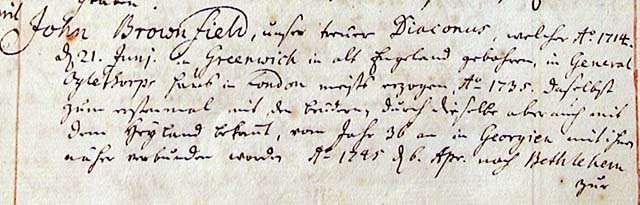 John Brownfield, unser treuer Diaconus, welcher Ao. 1714.
d. 21. Junj. in Greenwich in alt Engeland gebohren, in General
Oglethorps Haus in London meists erzogen, Ao 1735. daselbst
zum erstenmal mit den Brüdern, durch dieselbe aber auch mit
dem Heyland bekannt, vom Jahr 36 an in Georgien mit ihnen
näher verbunden worden Ao 1745 d. 6. Apr. nach Bethlehem
zur